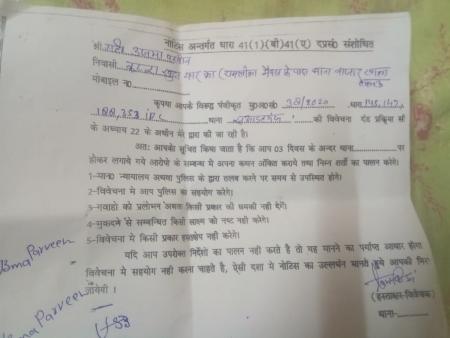 नोटिस अन्तर्गत धारा 41(1)(बी)41(ए) दप्रसं संशोधित
श्री
निवासी
मोबाइल न0
कृपया आपके विरूद्ध पंजीकृत मु0अ0सं0 38/2020 धारा 145,147,
188,353 IPC थाना की विवेचना दंड प्रक्रिया सं
के अध्याय 22 के अधीन मेरे द्वारा की जा रही है।
अतः आपको सूचित किया जाता है कि आप 03 दिवस के अन्दर थाना पर
होकर लगाये गये आरोपो के सम्बन्ध मे अपना कथन अंकित कराये तथा निम्न शर्तो का पालन करेगे।
1-मान0 न्यायालय अथवा पुलिस के द्वारा तलब करने पर समय से उपस्थित होगे।
2-विवेचना मे आप पुलिस का सहयोग करेगे।
3-गवाहो को प्रलोभन अथवा किसी प्रकार की धमकी नही देगें।
4-मुकदमे से सम्बन्धित किसी साक्ष्य को नष्ट नही करेगे।
5-विवेचना मे किसी प्रकार हस्तक्षेप नही करेगे।
यदि आप उपरोक्त निर्देशो का पालन नही करते है तो यह मानने का पर्याप्त आधार होगा
विवेचना मे सहयोग नही करना चाहते है, ऐसी दशा मे नोटिस का उल्लंघन मानते हुये आपकी गिर
जायेगी।
Uzma Parveen
Uzma Parveen
(हस्ताक्षर-विवेचक)
थाना-